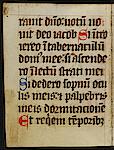 rauit dn̄o: uotū uo
uit deo iacob Si intro
iero ī tabernaculū
domꝰ mee: si ascende
ro ī lectū strati mei
Si dedero sopnū ocu
lis meis: ⁊ palpebris
meis dormitacionē
Et requiem tēporibꝫ